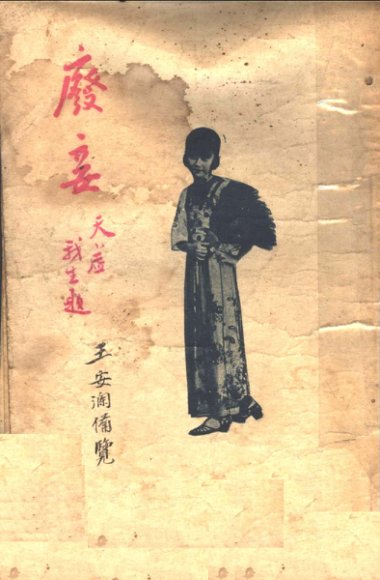 廢妾
天虛
我生題
王安瀾備覽